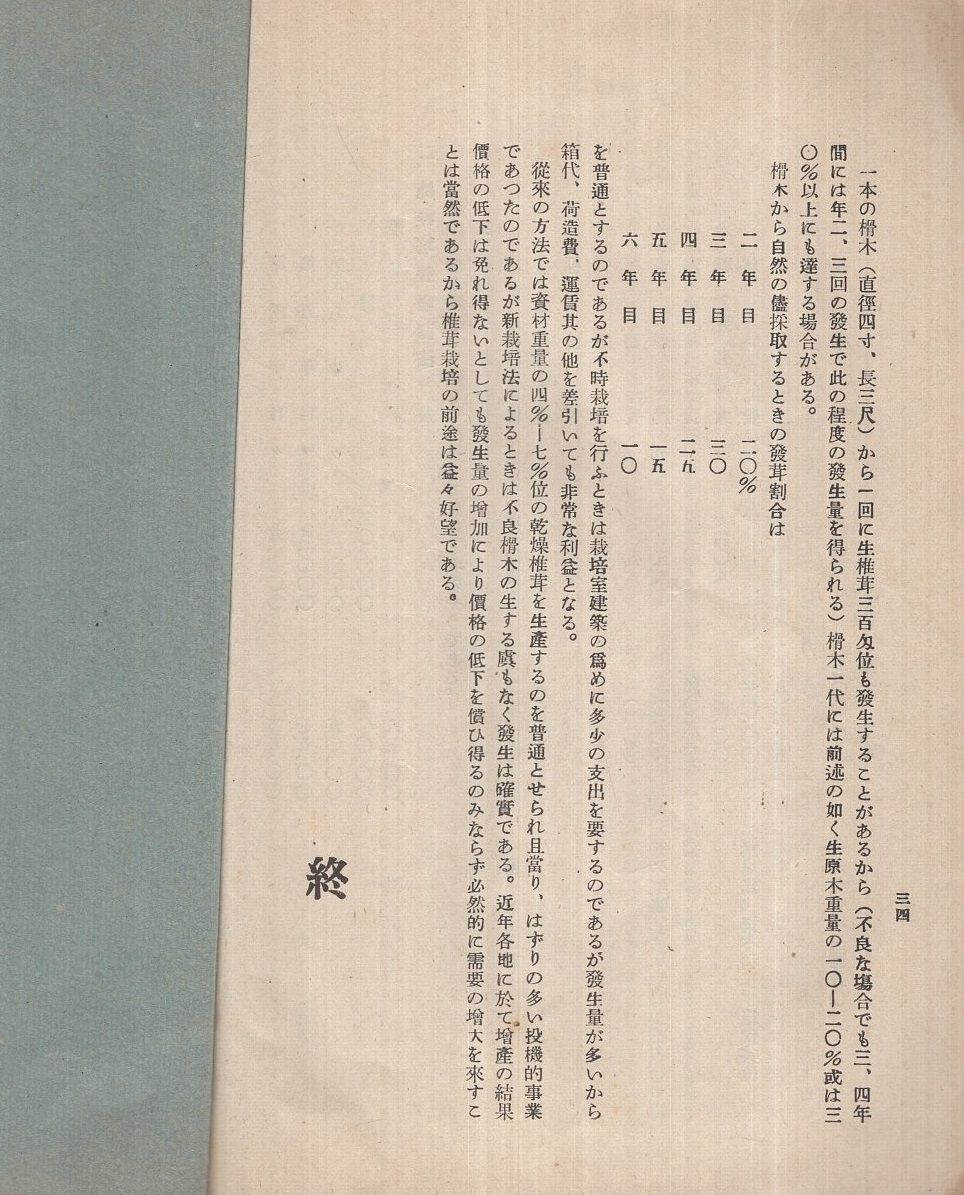 三四
一本の榾木（直徑四寸、長三尺）から一回に生椎茸三百匁位も發生することがあるから（不良な塲合でも三、四年
間には年二、三回の發生で此の程度の發生量を得られる）榾木一代には前述の如く生原木重量の一〇―二〇％或は三
〇％以上にも達する場合がある。
榾木から自然の儘採取するときの發茸割合は
二年目 二〇％
三年目 三〇
四年目 二五
五年目 一五
六年目 一〇
を普通とするのであるが不時栽培を行ふときは栽培室建築の爲めに多少の支出を要するのであるが發生量が多いから
箱代、荷造費、運賃其の他を差引いても非常な利益となる。
從來の方法では資材重量の四％―七％位の乾燥椎茸を生產するのを普通とせられ且當り、はずりの多い投機的事業
であつたのであるが新栽培法によるときは不良榾木の生する虞もなく發生は確實である。近年各地に於て增產の結果
價格の低下は免れ得ないとしても發生量の增加により價格の低下を償ひ得るのみならず必然的に需要の增大を來すこ
とは當然であるから椎茸栽培の前途は益々好望である。
終